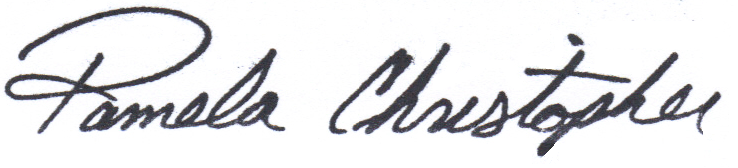 Pamela Christopher